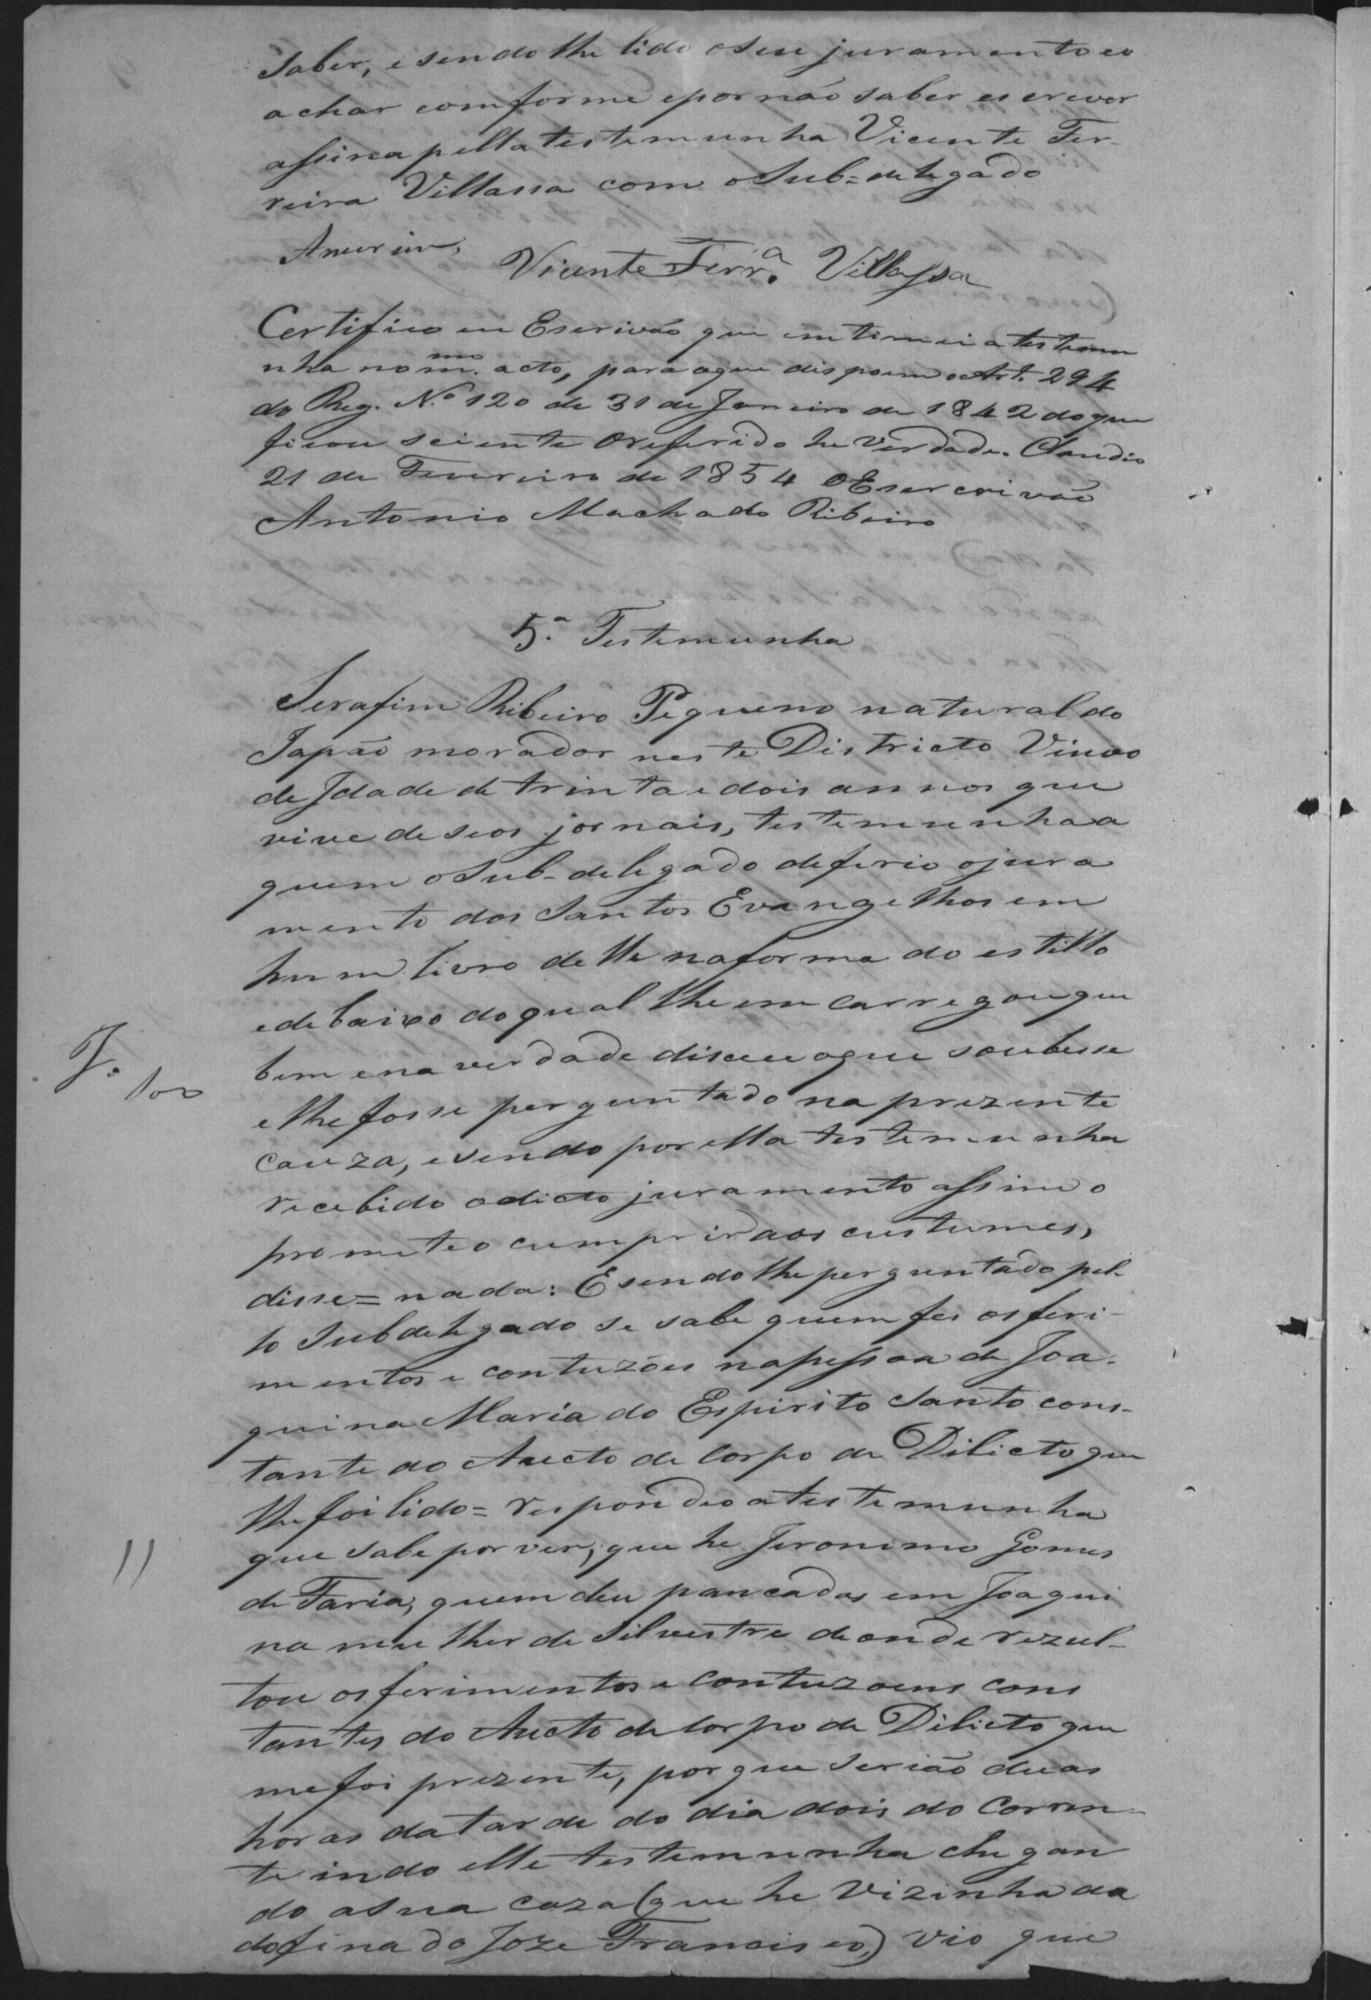 saber, e sendo lhe lido o seu juramento eo
achar comforme epornão saber escrever
assina pella testemunha Vicente Fer-
reira Villassa com oSub=delegado
Vicente Ferr.a Villassa
Certifico eu Escrivão que intimei a testemu
nha no m.mo acto, para oque dispoem o Art. 294
do Reg. N.o 120 de 31 de Janeiro de 1842 do que
ficou sciente Oreferido he verdade. Claudio
21 de Fevereiro de 1854 O Esercrivão
Antonio Machado Ribeiro
5.a Testemunha
Serafim Ribeiro Pequeno natural do
Japão morador neste Districto Viuvo
de Idade de trinta e dois annos que
vive de seos jornais, testemunha a
quem oSub-delegado deferio ojura
mento dos Santos Evangelhos em
hum livro delle naforma do estillo
edebaixo doqual lhe emcarregou que
bem ena verdade disceце oque soubesse
elhe fosse perguntado na prezente
cauza, esendo por ella testemunha
recebido odicto juramento assim o
prometeo cumprir daos custumes,
disse= nada: Esendo lhe perguntado pel-
lo Subdelegado se sabe quem fes osferi-
mentos e contuzões napessoa de Joa-
quina Maria do Espirito Santo cons-
tante do Aucto de Corpo de Dilicto que
lhe foi lido= respondeo a testemunha
que sabe por ver, que he Jeronimo Gomes
de Faria, quem deu pancadas em Joaqui
na mulher de Silvestre deonde rezul-
tou os ferimentos e contuzoens cons
tantes do Aucto de Corpo de Dilicto que
me foi prezente, porque serião duas
horas datarde do dia dois do Corren-
te indo elle testemunha chegan
do asua caza (que he vizinha da
dofinado Joze Francisco) vio que
J. 100
11